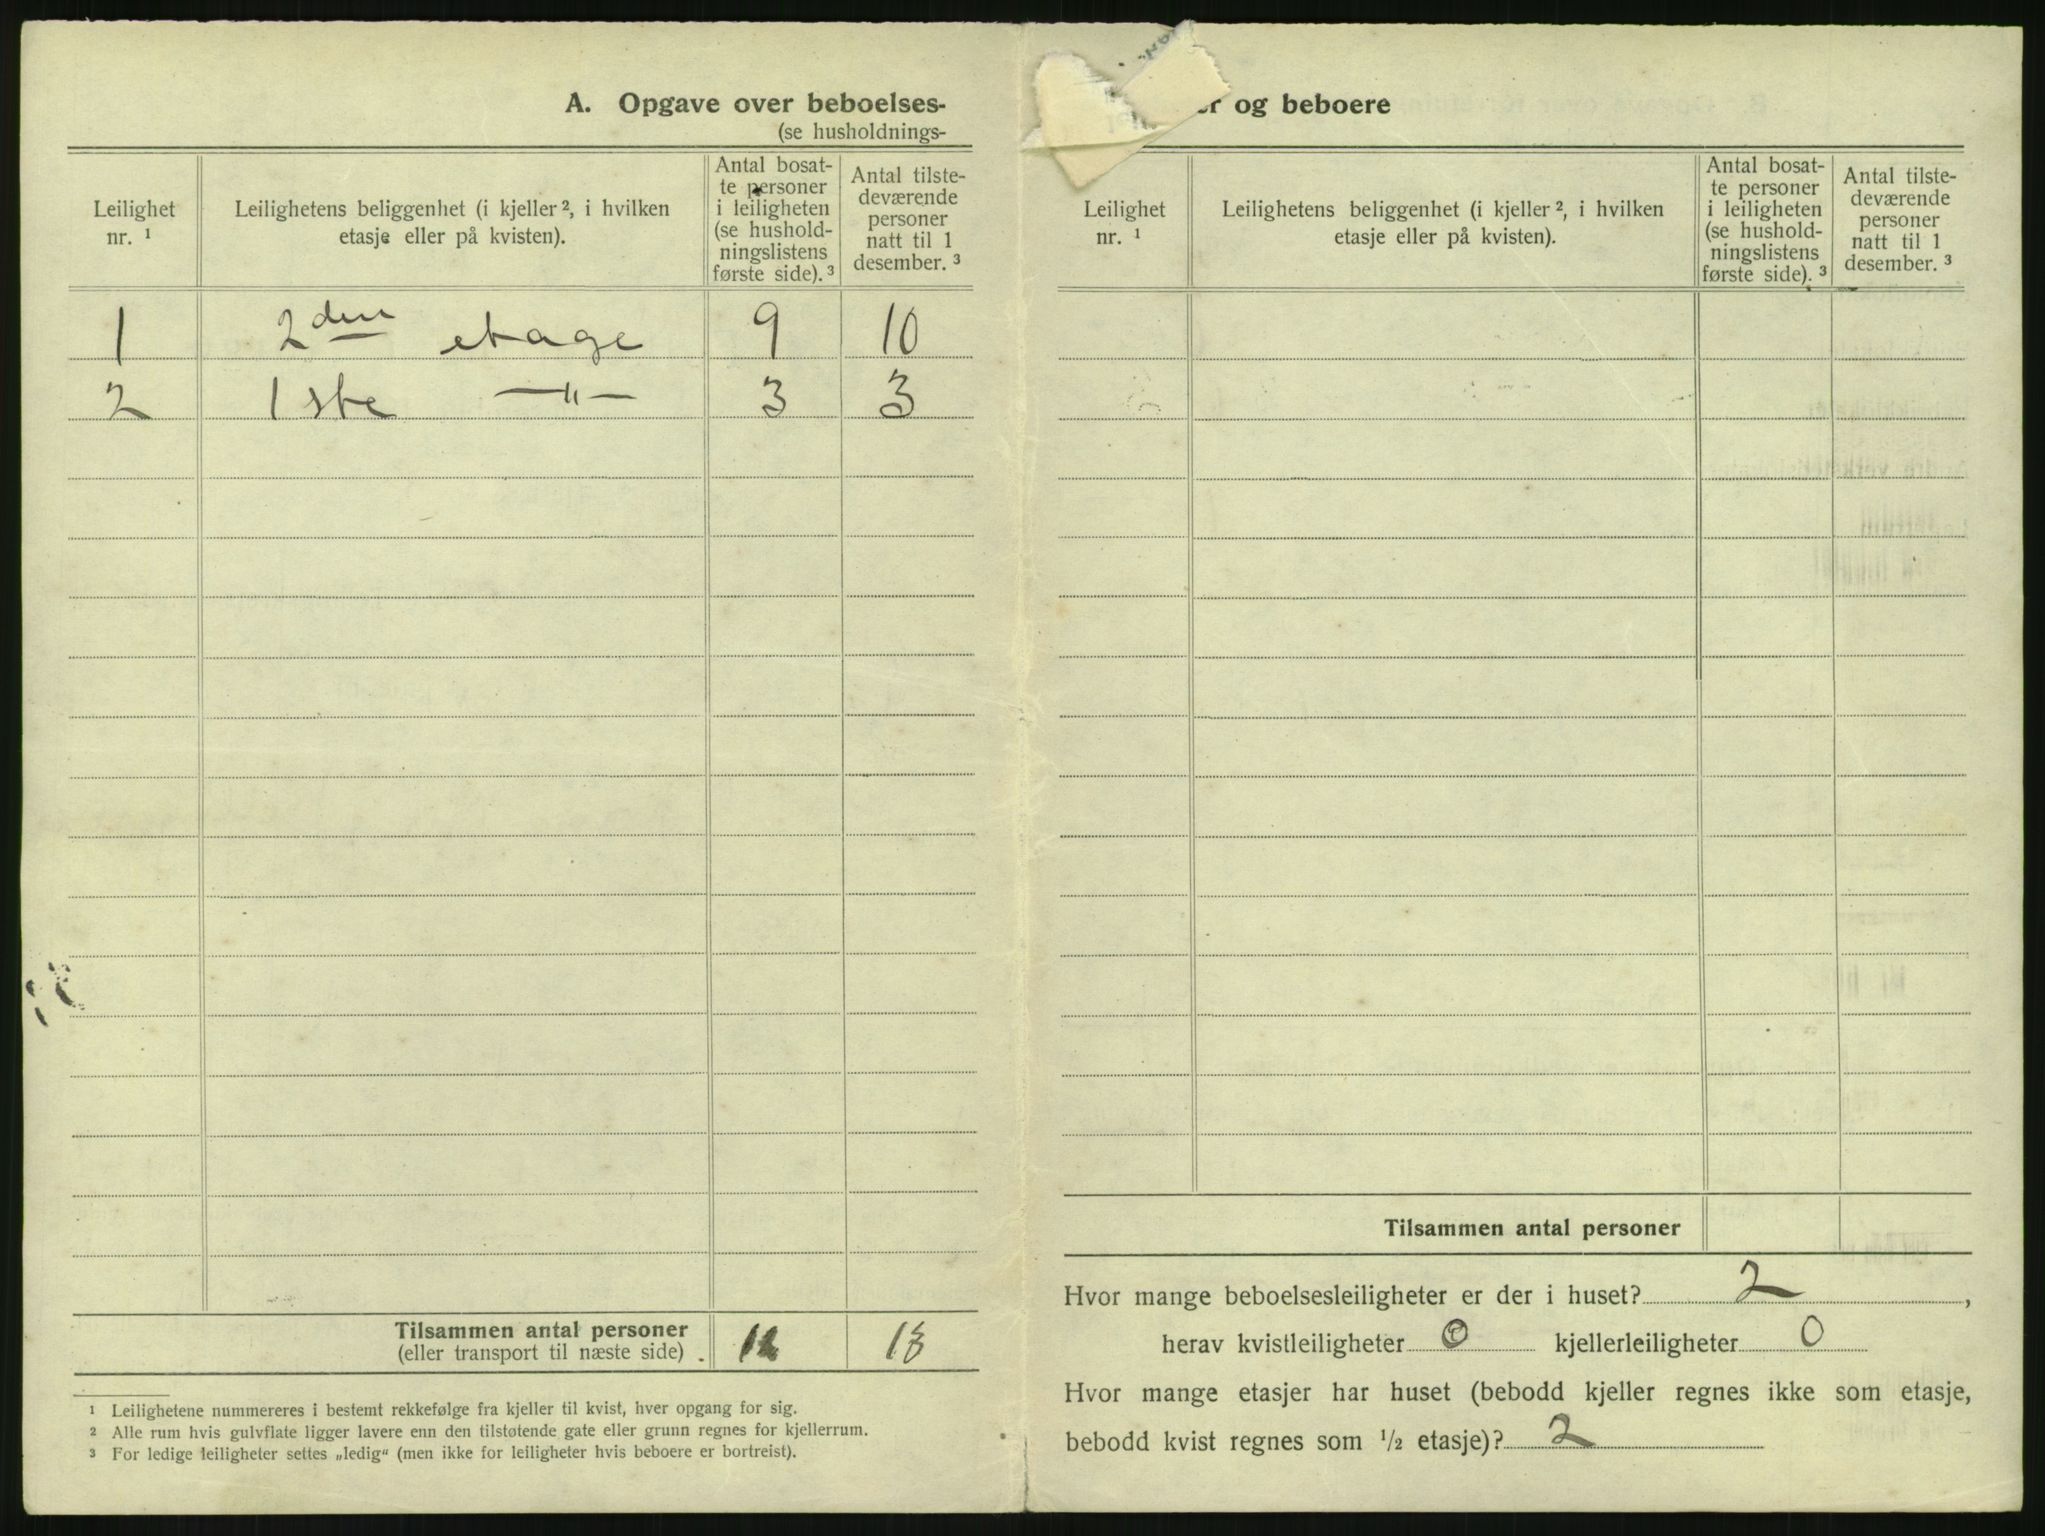 A. Opgave over beboelses-
(se husholdnings-
Leilighet nr. ¹
Leilighetens beliggenhet (i kjeller ², i hvilken etasje eller på kvisten).
Antal bosat-
te personer
i leiligheten
(se hushold-
ningslistens
første side). ³
Antal tilste-
deværende
personer
natt til 1
desember. ³
1 2den etage 9 10
2 1ste —"— 3 3
Tilsammen antal personer 12 13
(eller transport til næste side)
¹ Leilighetene nummereres i bestemt rekkefølge fra kjeller til kvist, hver opgang for sig.
² Alle rum hvis gulvflate ligger lavere enn den tilstøtende gate eller grunn regnes for kjellerrum.
³ For ledige leiligheter settes „ledig“ (men ikke for leiligheter hvis beboere er bortreist).
er og beboere
Leilighet nr. ¹
Leilighetens beliggenhet (i kjeller ², i hvilken etasje eller på kvisten).
Antal bosat-
te personer
i leiligheten
(se hushold-
ningslistens
første side). ³
Antal tilste-
deværende
personer
natt til 1
desember. ³
Tilsammen antal personer
Hvor mange beboelsesleiligheter er der i huset? 2,
herav kvistleiligheter 0 kjellerleiligheter 0
Hvor mange etasjer har huset (bebodd kjeller regnes ikke som etasje,
bebodd kvist regnes som ½ etasje)? 2